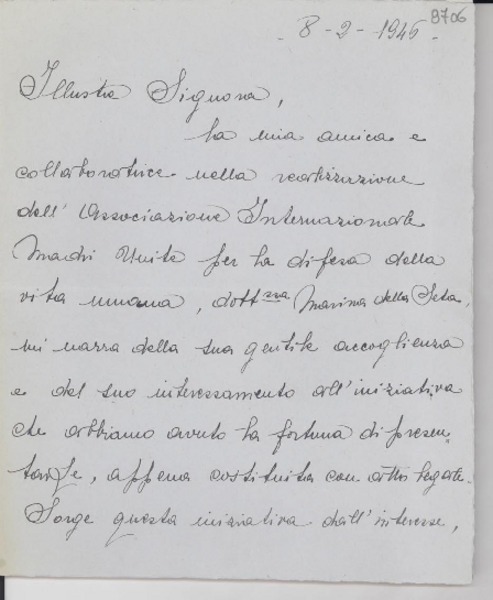 8706
8-2-1946.
Illustre Signora,
la mia amica e
collaboratrice nella realizzazione
dell'Associazione Internazionale
Madri Unite per la difesa della
vita umana, dott.ssa Marina della Seta,
mi narra della sua gentile accoglienza
e del suo interessamento all'iniziativa
che abbiamo avuto la fortuna di presen
tarle, appena costituita con atto legale.
Sorge questa iniziativa dall'interesse,